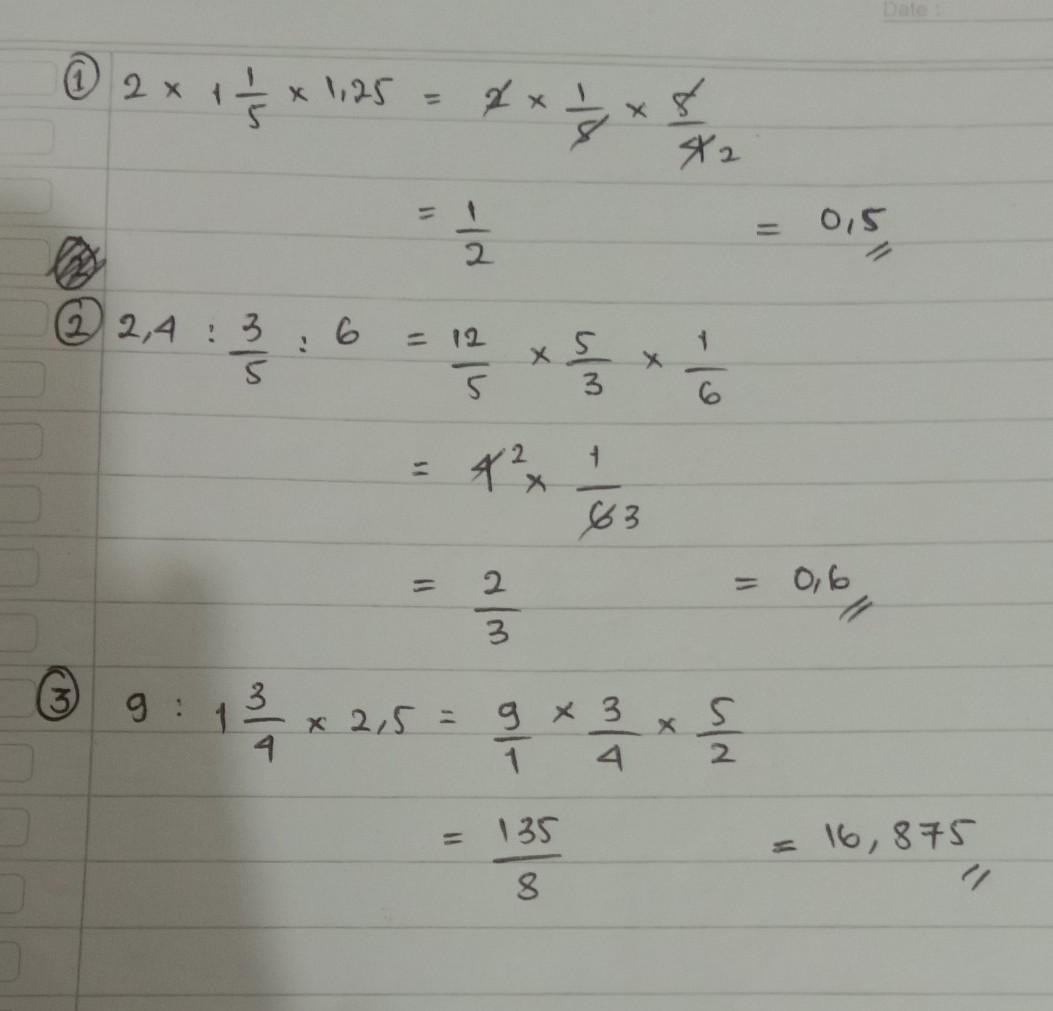 Date :
① 2 × 1 1/5 × 1,25 = 2 × 1/5 × 5/4 2
= 1/2 = 0,5
② 2,4 : 3/5 : 6 = 12/5 × 5/3 × 1/6
= 4 2 × 1/6 3
= 2/3 = 0,6
③ 9 : 1 3/4 × 2,5 = 9/1 × 3/4 × 5/2
= 135/8 = 16,875